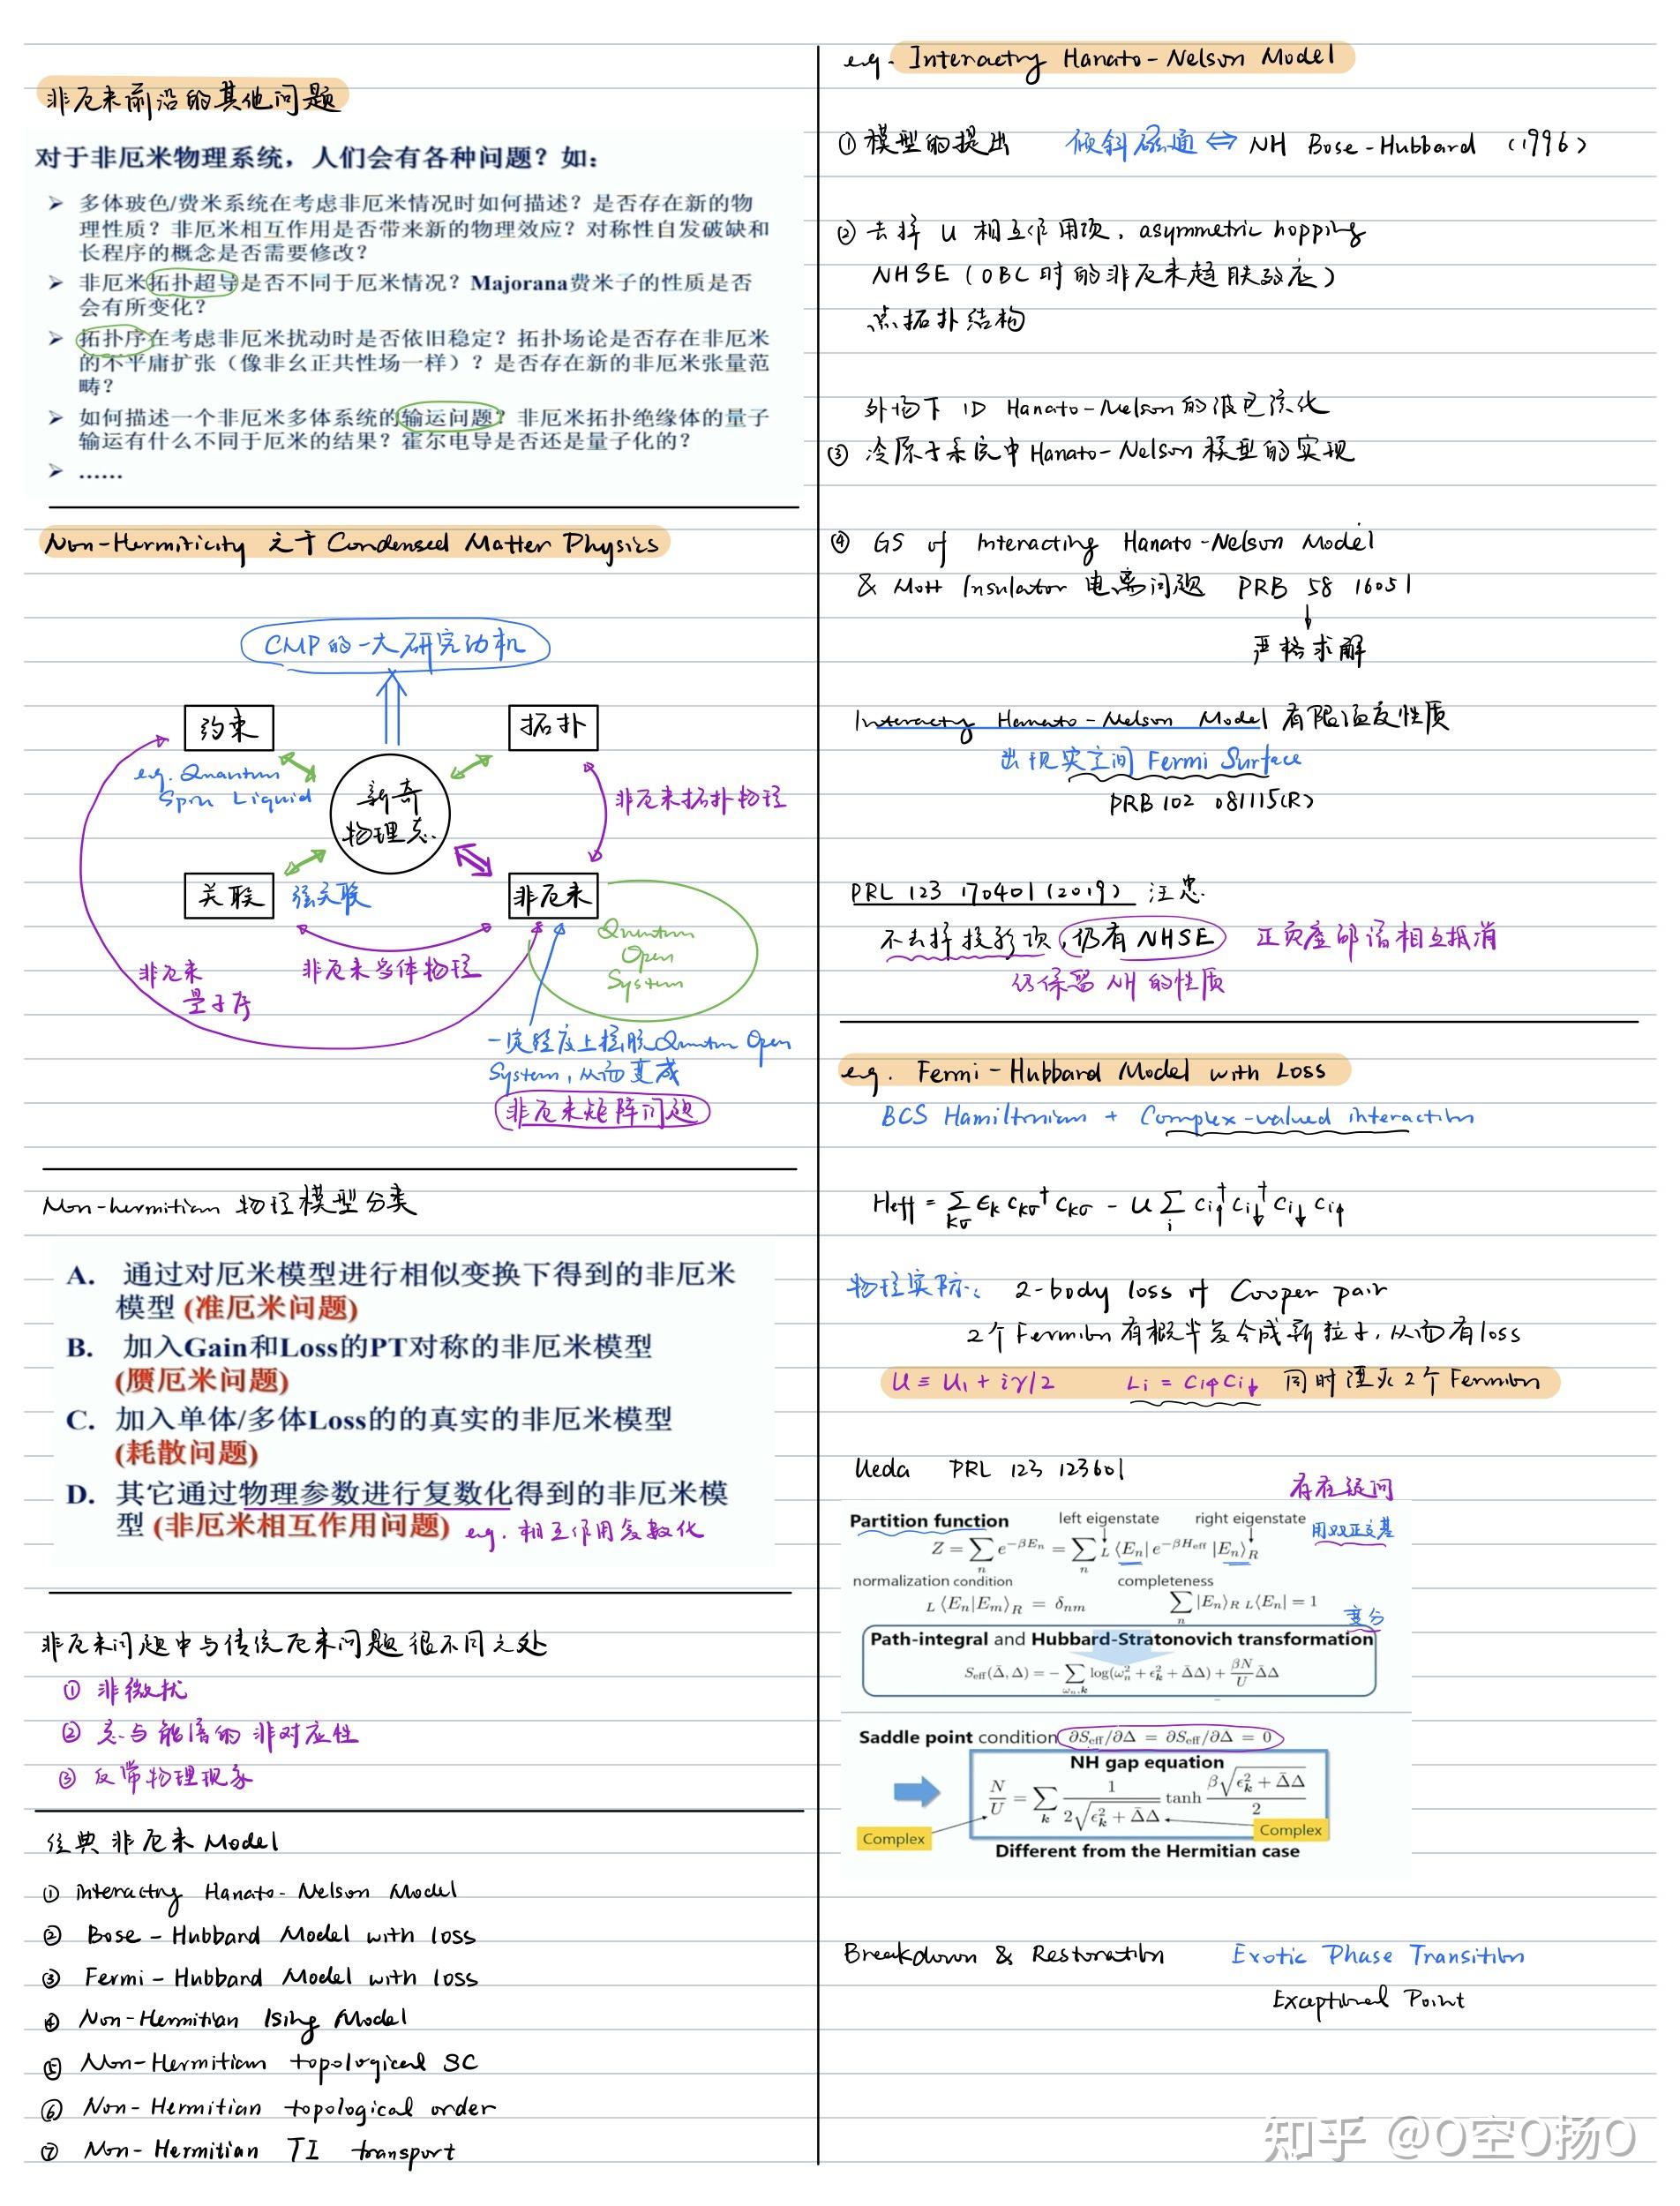 非厄米前沿的其他问题
对于非厄米物理系统，人们会有各种问题？如：
➢ 多体玻色/费米系统在考虑非厄米情况时如何描述？是否存在新的物
理性质？非厄米相互作用是否带来新的物理效应？对称性自发破缺和
长程序的概念是否需要修改？
➢ 非厄米拓扑超导是否不同于厄米情况？Majorana费米子的性质是否
会有所变化？
➢ 拓扑序在考虑非厄米扰动时是否依旧稳定？拓扑场论是否存在非厄米
的不平庸扩张（像非幺正共性场一样）？是否存在新的非厄米张量范
畴？
➢ 如何描述一个非厄米多体系统的输运问题？非厄米拓扑绝缘体的量子
输运有什么不同于厄米的结果？霍尔电导是否还是量子化的？
➢ ……
Non-Hermiticity 之于 Condensed Matter Physics
CMP的一大研究动机
约束
拓扑
e.g. Quantum
Spin Liquid
新奇
物理态
非厄米拓扑物理
关联
强关联
非厄米
Quantum
Open
System
非厄米多体物理
非厄米
量子序
一定程度上摆脱Quantum Open
System, 从而变成
非厄米矩阵问题
Non-hermitian 物理模型分类
A. 通过对厄米模型进行相似变换下得到的非厄米
模型 (准厄米问题)
B. 加入Gain和Loss的PT对称的非厄米模型
(赝厄米问题)
C. 加入单体/多体Loss的的真实的非厄米模型
(耗散问题)
D. 其它通过物理参数进行复数化得到的非厄米模
型 (非厄米相互作用问题) e.g. 相互作用复数化
非厄米问题中与传统厄米问题很不同之处
① 非微扰
② 态与能谱的非对应性
③ 反常物理现象
经典非厄米Model
① interacting Hanato-Nelson Model
② Bose-Hubbard Model with loss
③ Fermi-Hubbard Model with loss
④ Non-Hermitian Ising Model
⑤ Non-Hermitian topological SC
⑥ Non-Hermitian topological order
⑦ Non-Hermitian TI transport
e.g. Interacting Hanato-Nelson Model
① 模型的提出 倾斜磁通 ⇔ NH Bose-Hubbard (1996)
② 去掉 U 相互作用项, asymmetric hopping
NHSE (OBC时的非厄米趋肤效应)
点拓扑结构
外场下 1D Hanato-Nelson的波包演化
③ 冷原子系统中Hanato-Nelson模型的实现
④ GS of interacting Hanato-Nelson Model
& Mott Insulator 电离问题 PRB 58 16051
↓
严格求解
Interacting Hanato-Nelson Model 有限温度性质
出现实空间 Fermi Surface
PRB 102 081115(R)
PRL 123 170401 (2019) 汪忠
不去掉投影项, 仍有NHSE 正负虚部谱相互抵消
仍保留 NH 的性质
e.g. Fermi-Hubbard Model with Loss
BCS Hamiltonian + Complex-valued interaction
Heff = ∑kσ ϵk ckσ† ckσ - U ∑i ci↑† ci↓† ci↓ ci↑
物理实际: 2-body loss of Cooper pair
2个Fermion有概率复合成新粒子, 从而有loss
U ≡ U1 + iγ/2 Li = ci↑ci↓ 同时湮灭2个Fermion
Ueda PRL 123 123601
存在疑问
Partition function left eigenstate right eigenstate 用双正交基
Z = ∑n e^{-βEn} = ∑n L⟨En| e^{-βHeff} |En⟩R
normalization condition completeness
L⟨En|Em⟩R = δnm ∑n |En⟩R L⟨En| = 1
变分
Path-integral and Hubbard-Stratonovich transformation
Seff(Δ̄, Δ) = -∑ωn,k log(ωn² + ϵk² + Δ̄Δ) + βN/U Δ̄Δ
Saddle point condition ∂Seff/∂Δ = ∂Seff/∂Δ̄ = 0
NH gap equation
N/U = ∑k 1/(2√(ϵk² + Δ̄Δ)) tanh β√(ϵk² + Δ̄Δ)/2
Complex Complex
Different from the Hermitian case
Breakdown & Restoration Exotic Phase Transition
Exceptional Point
知乎 @O空O扬O